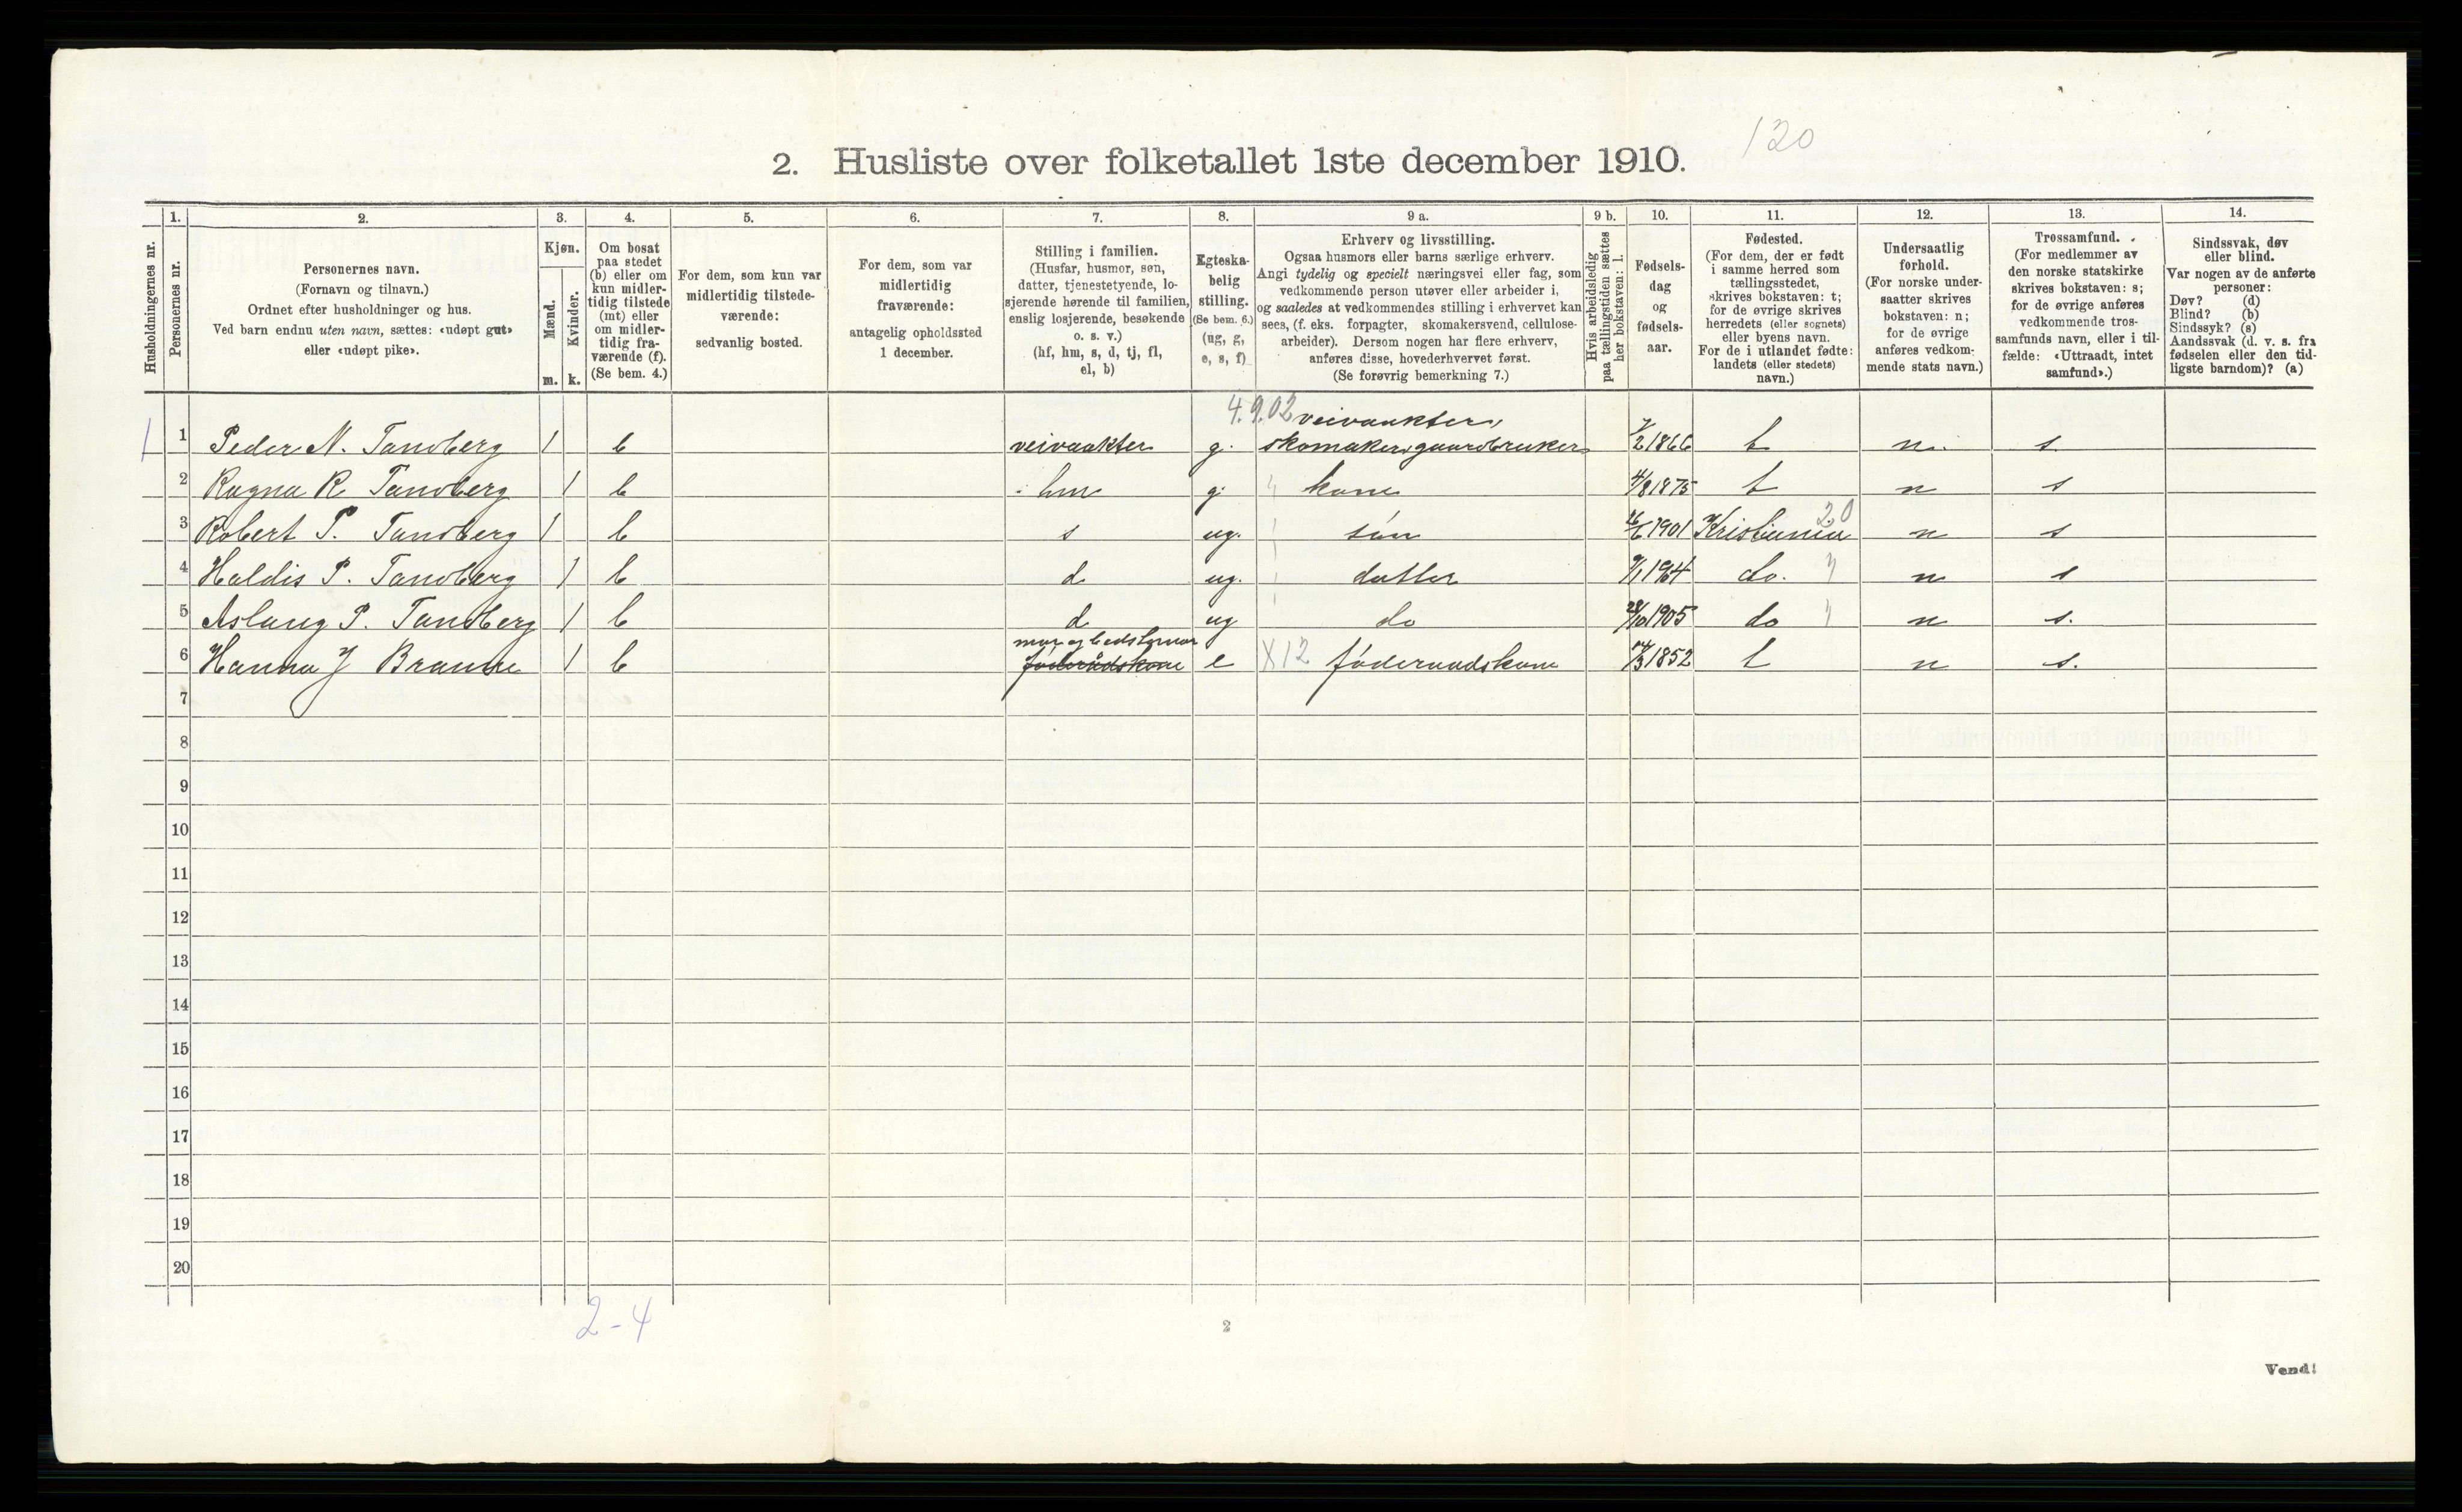 120
2. Husliste over folketallet 1ste december 1910.
1. 2. 3. 4. 5. 6. 7. 8. 9 a. 9 b. 10. 11. 12. 13. 14.
Husholdningernes nr.
Personernes nr.
Personernes navn.
(Fornavn og tilnavn.)
Ordnet efter husholdninger og hus.
Ved barn endnu uten navn, sættes: «udøpt gut»
eller «udøpt pike».
Kjøn.
Mænd.
Kvinder.
m. k.
Om bosat
paa stedet
(b) eller om
kun midler-
tidig tilstede
(mt) eller
om midler-
tidig fra-
værende (f).
(Se bem. 4.)
For dem, som kun var
midlertidig tilstede-
værende:
sedvanlig bosted.
For dem, som var
midlertidig
fraværende:
antagelig opholdssted
1 december.
Stilling i familien.
(Husfar, husmor, søn,
datter, tjenestetyende, lo-
sjerende hørende til familien,
enslig losjerende, besøkende
o. s. v.)
(hf, hm, s, d, tj, fl,
el, b)
Egteska-
belig
stilling.
(Se bem. 6.)
(ug, g,
e, s, f)
Erhverv og livsstilling.
Ogsaa husmors eller barns særlige erhverv.
Angi tydelig og specielt næringsvei eller fag, som
vedkommende person utøver eller arbeider i,
og saaledes at vedkommendes stilling i erhvervet kan
sees, (f. eks. forpagter, skomakersvend, cellulose-
arbeider). Dersom nogen har flere erhverv,
anføres disse, hovederhvervet først.
(Se forøvrig bemerkning 7.)
Hvis arbeidsledig
paa tællingstiden sættes
her bokstaven: l.
Fødsels-
dag
og
fødsels-
aar.
Fødested.
(For dem, der er født
i samme herred som
tællingsstedet,
skrives bokstaven: t;
for de øvrige skrives
herredets (eller sognets)
eller byens navn.
For de i utlandet fødte:
landets (eller stedets)
navn.)
Undersaatlig
forhold.
(For norske under-
saatter skrives
bokstaven: n;
for de øvrige
anføres vedkom-
mende stats navn.)
Trossamfund.
(For medlemmer av
den norske statskirke
skrives bokstaven: s;
for de øvrige anføres
vedkommende tros-
samfunds navn, eller i til-
fælde: «Uttraadt, intet
samfund».)
Sindssvak, døv
eller blind.
Var nogen av de anførte
personer:
Døv? (d)
Blind? (b)
Sindssyk? (s)
Aandssvak (d. v. s. fra
fødselen eller den tid-
ligste barndom)? (a)
4.9.02 veivaukter,
1 1 Peder N. Tandberg 1 b veivaukter g. skomaker, gaardbruker 7/2 1866 t n. s.
2 Ragna R Tandberg 1 b hm g. kone 4/8 1875 t n s
20
3 Robert P. Tandberg 1 b s ug. søn 1901 Kristiania n s
4 Haldis P. Tandberg 1 b d ug. datter 1904 do. n s
5 Aslaug P. Tandberg 1 b d ug do 28/10 1905 do n s.
mor og bedstemor
6 Hanna J Braune 1 b føderådskone e X12 føderaadskone 1852 t n s.
7
8
9
10
11
12
13
14
15
16
17
18
19
20
2-4
2
Vend!